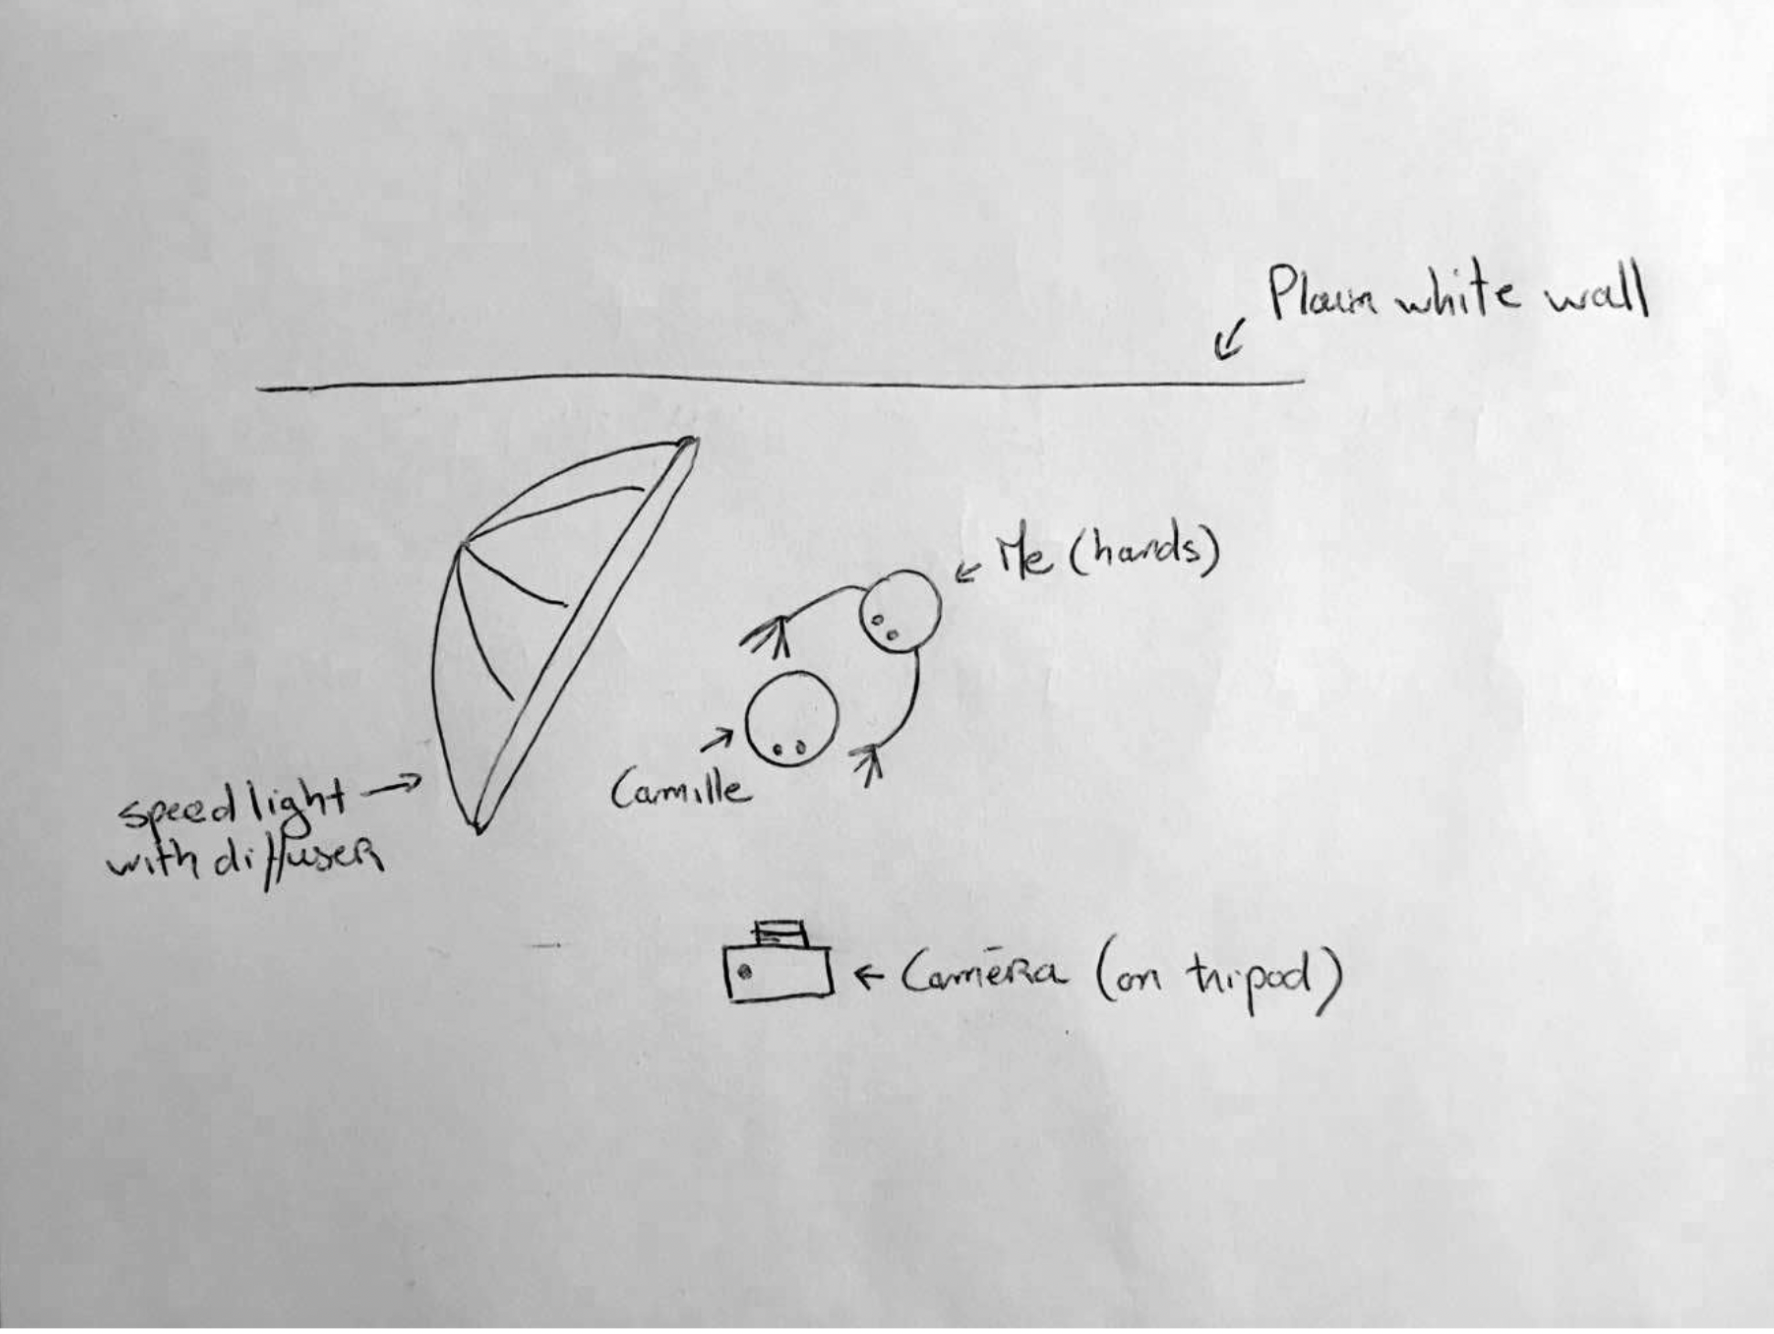 Plain white wall
Me (hands)
Camille
speed light
with diffuser
Caméra (on tripod)